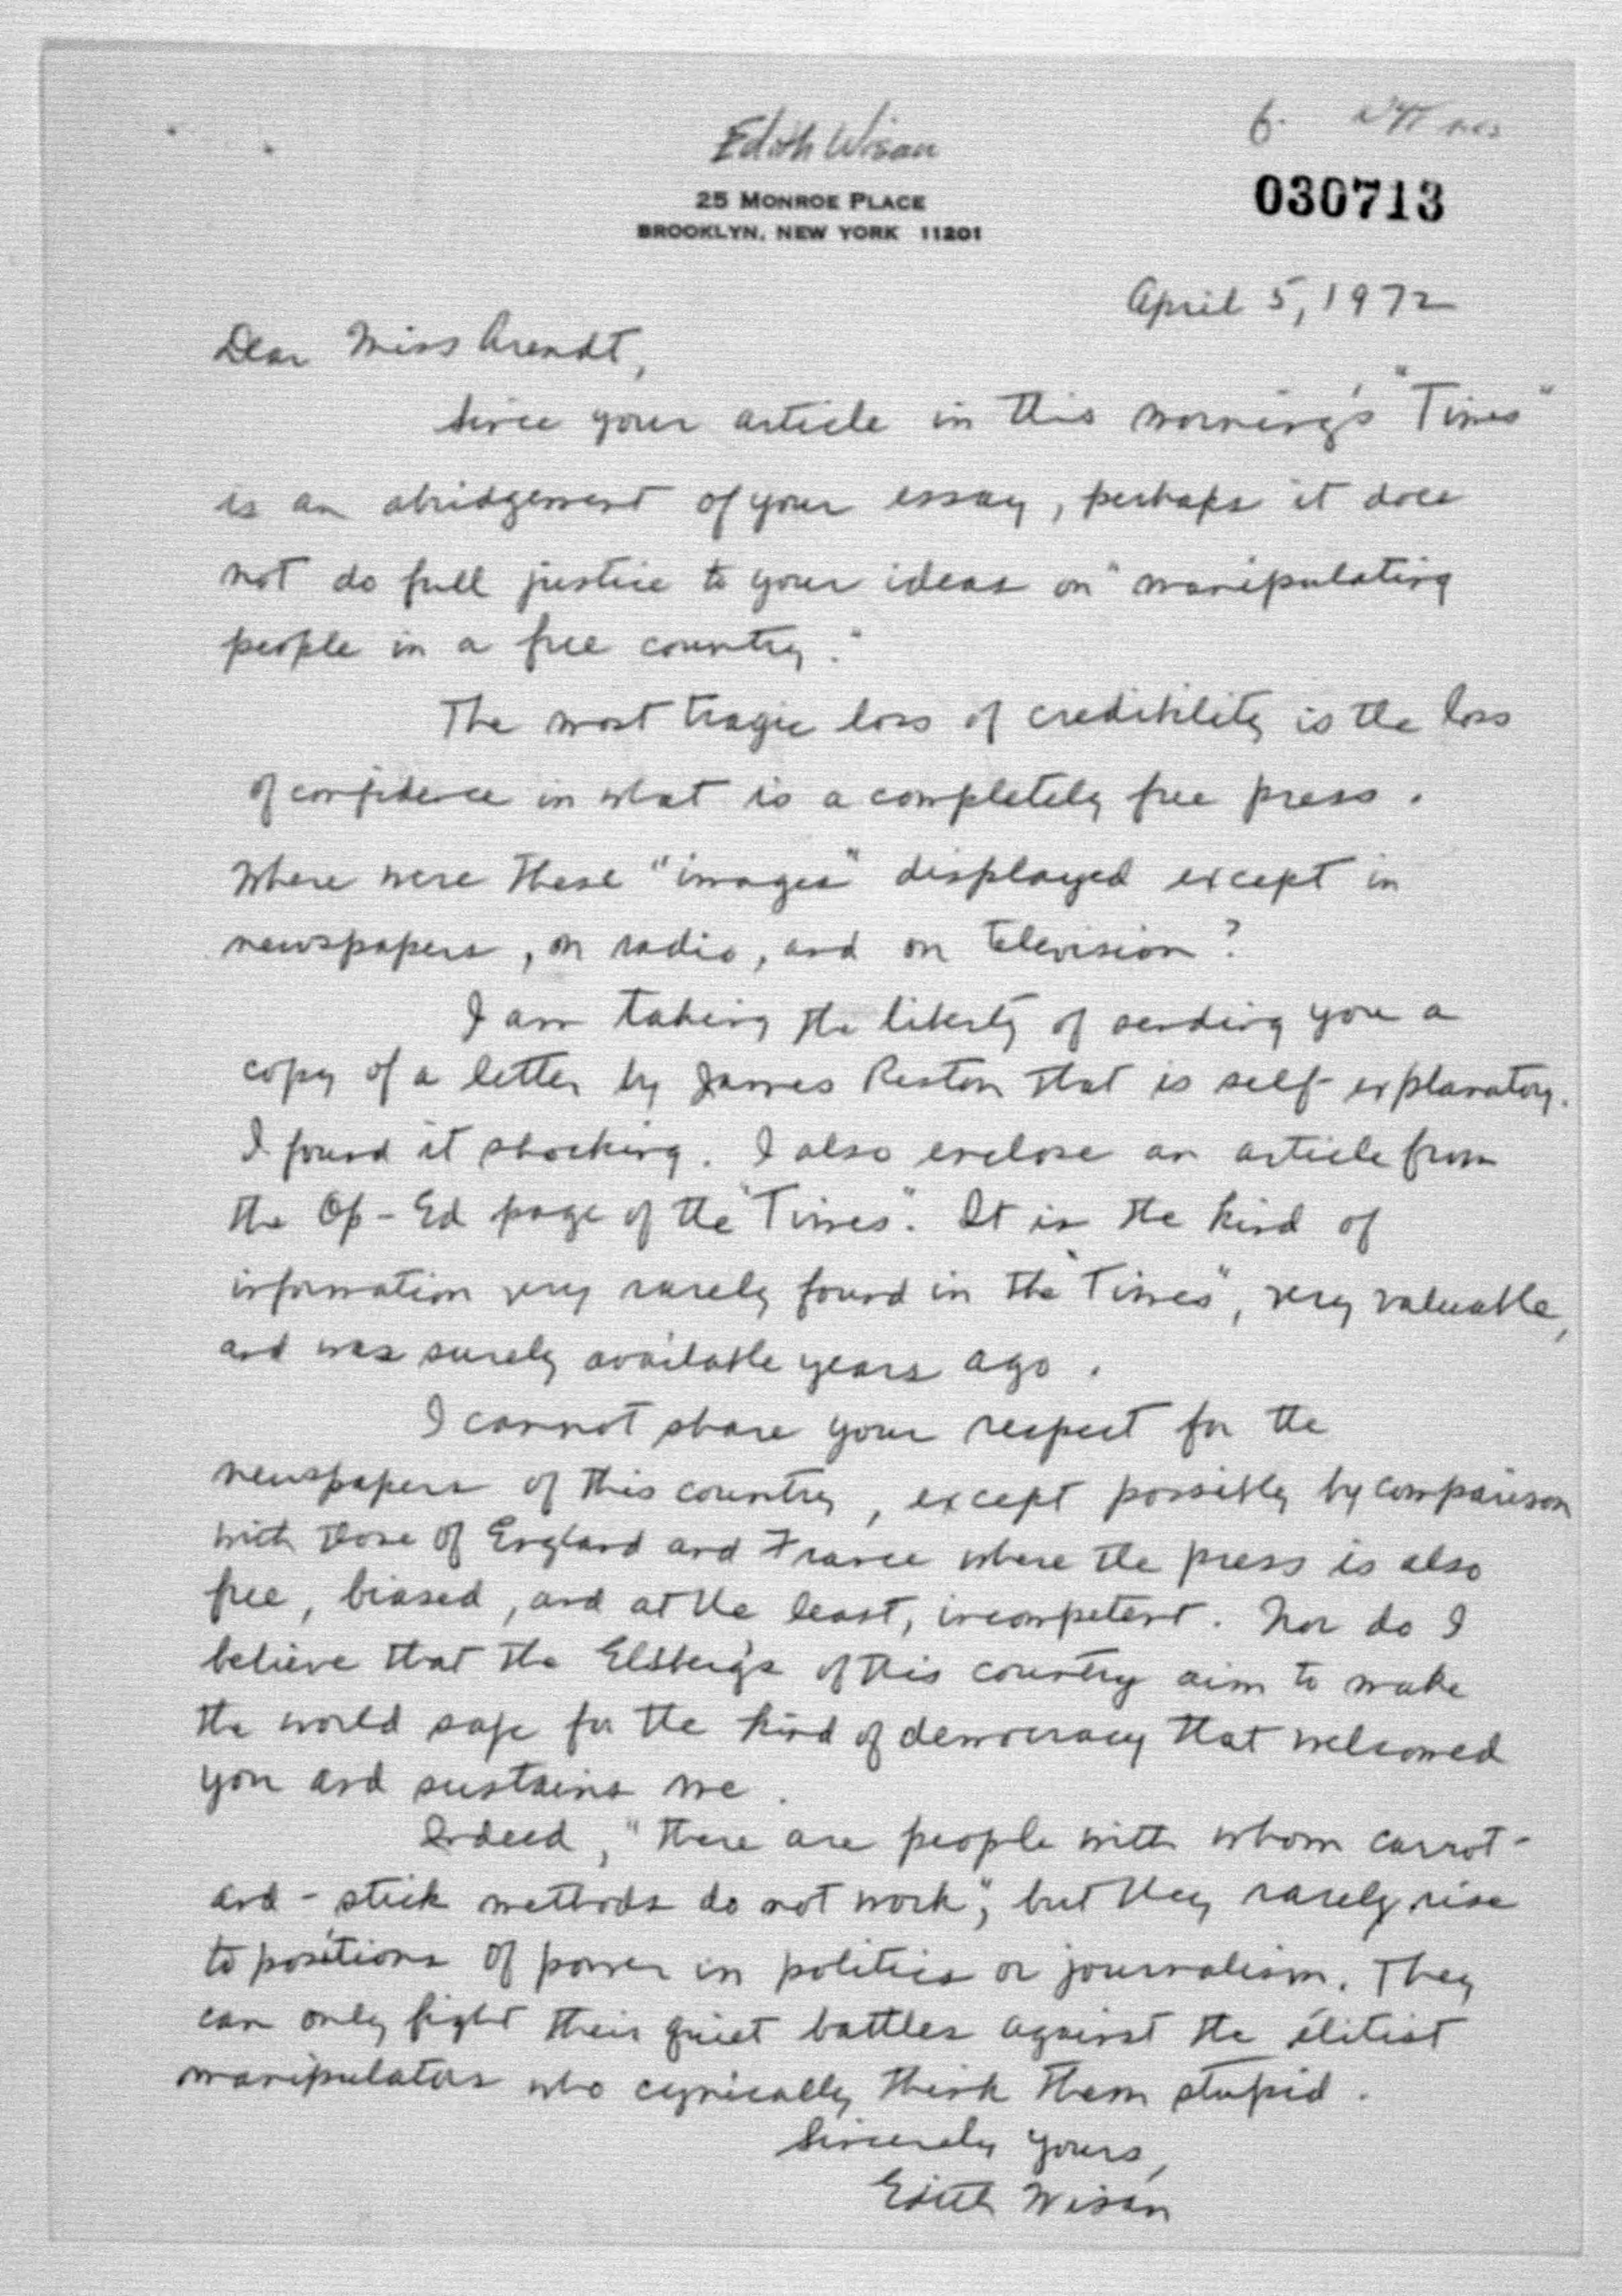 Edith Wisan
25 MONROE PLACE
BROOKLYN, NEW YORK 11201
030713
April 5, 1972
Dear Miss Arendt,
Since your article in this morning's "Times"
is an abridgement of your essay, perhaps it does
not do full justice to your ideas on "manipulating
people in a free country."
The most tragic loss of credibility is the loss
of confidence in what is a completely free press.
Where were these "images" displayed except in
newspapers, on radio, and on television?
I am taking the liberty of sending you a
copy of a letter by James Reston that is self-explanatory.
I found it shocking. I also enclose an article from
the Op-Ed page of the "Times". It is the kind of
information very rarely found in the "Times", very valuable,
and was surely available years ago.
I cannot share your respect for the
newspapers of this country, except possibly by comparison
with those of England and France where the press is also
free, biased, and at the least, incompetent. Nor do I
believe that the Elsberg's of this country aim to make
the world safe for the kind of democracy that welcomed
you and sustains me.
Indeed, "there are people with whom carrot-
and-stick methods do not work", but they rarely rise
to positions of power in politics or journalism. They
can only fight their quiet battles against the élitist
manipulators who cynically think them stupid.
Sincerely yours,
Edith Wisan